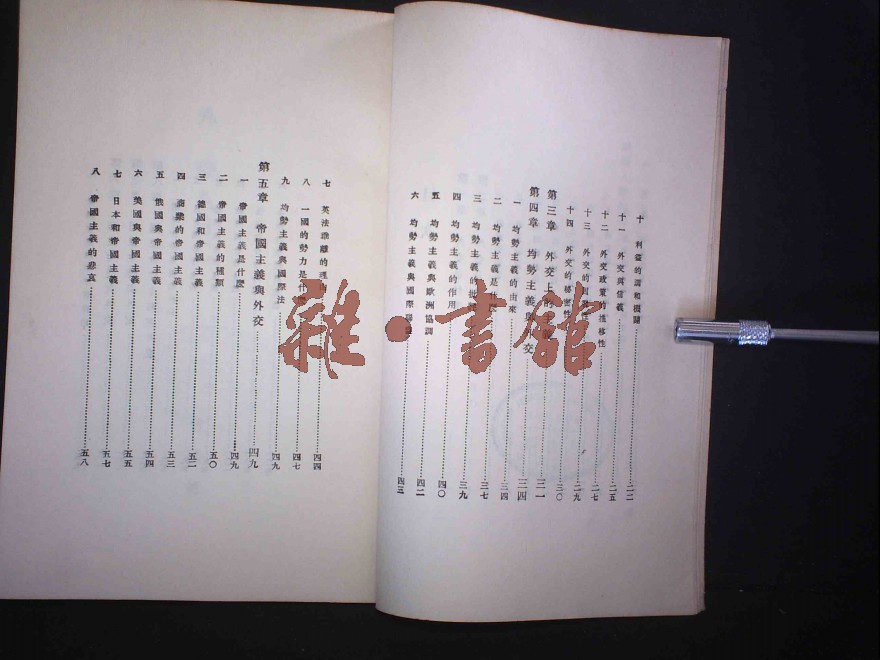 十 利益的調和
十一 外交與信義……二五
十二 外交政策的推移性……二七
十三 外交的……二九
十四 外交的祕密性……三〇
第三章 外交上的……三一
第四章 均勢主義與外交……三四
一 均勢主義的由來……三四
二 均勢主義是什麼……三七
三 均勢主義的……三九
四 均勢主義的作用……四〇
五 均勢主義與歐洲協調……四二
六 均勢主義與國際……四三
七 英法乖離的理由……四四
八 一國的勢力是什麼……四七
九 均勢主義與國際法……四九
第五章 帝國主義與外交……四九
一 帝國主義是什麼……四九
二 帝國主義的種類……五〇
三 德國和帝國主義……五二
四 的帝國主義……五三
五 俄國與帝國主義……五四
六 美國與帝國主義……五五
七 日本和帝國主義……五七
八 帝國主義的悲哀……五八
雜·書館